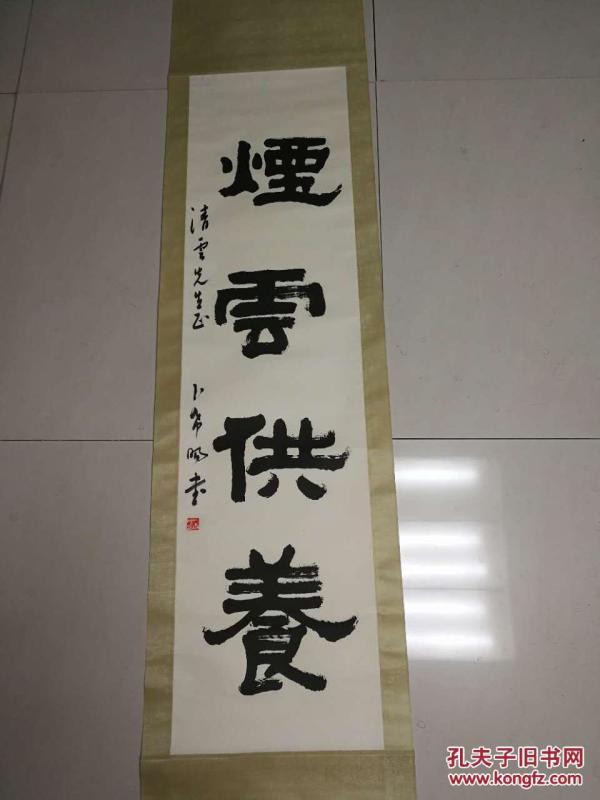 煙雲供養
清雲先生正
卜希暘書
孔夫子旧书网
www.kongfz.com